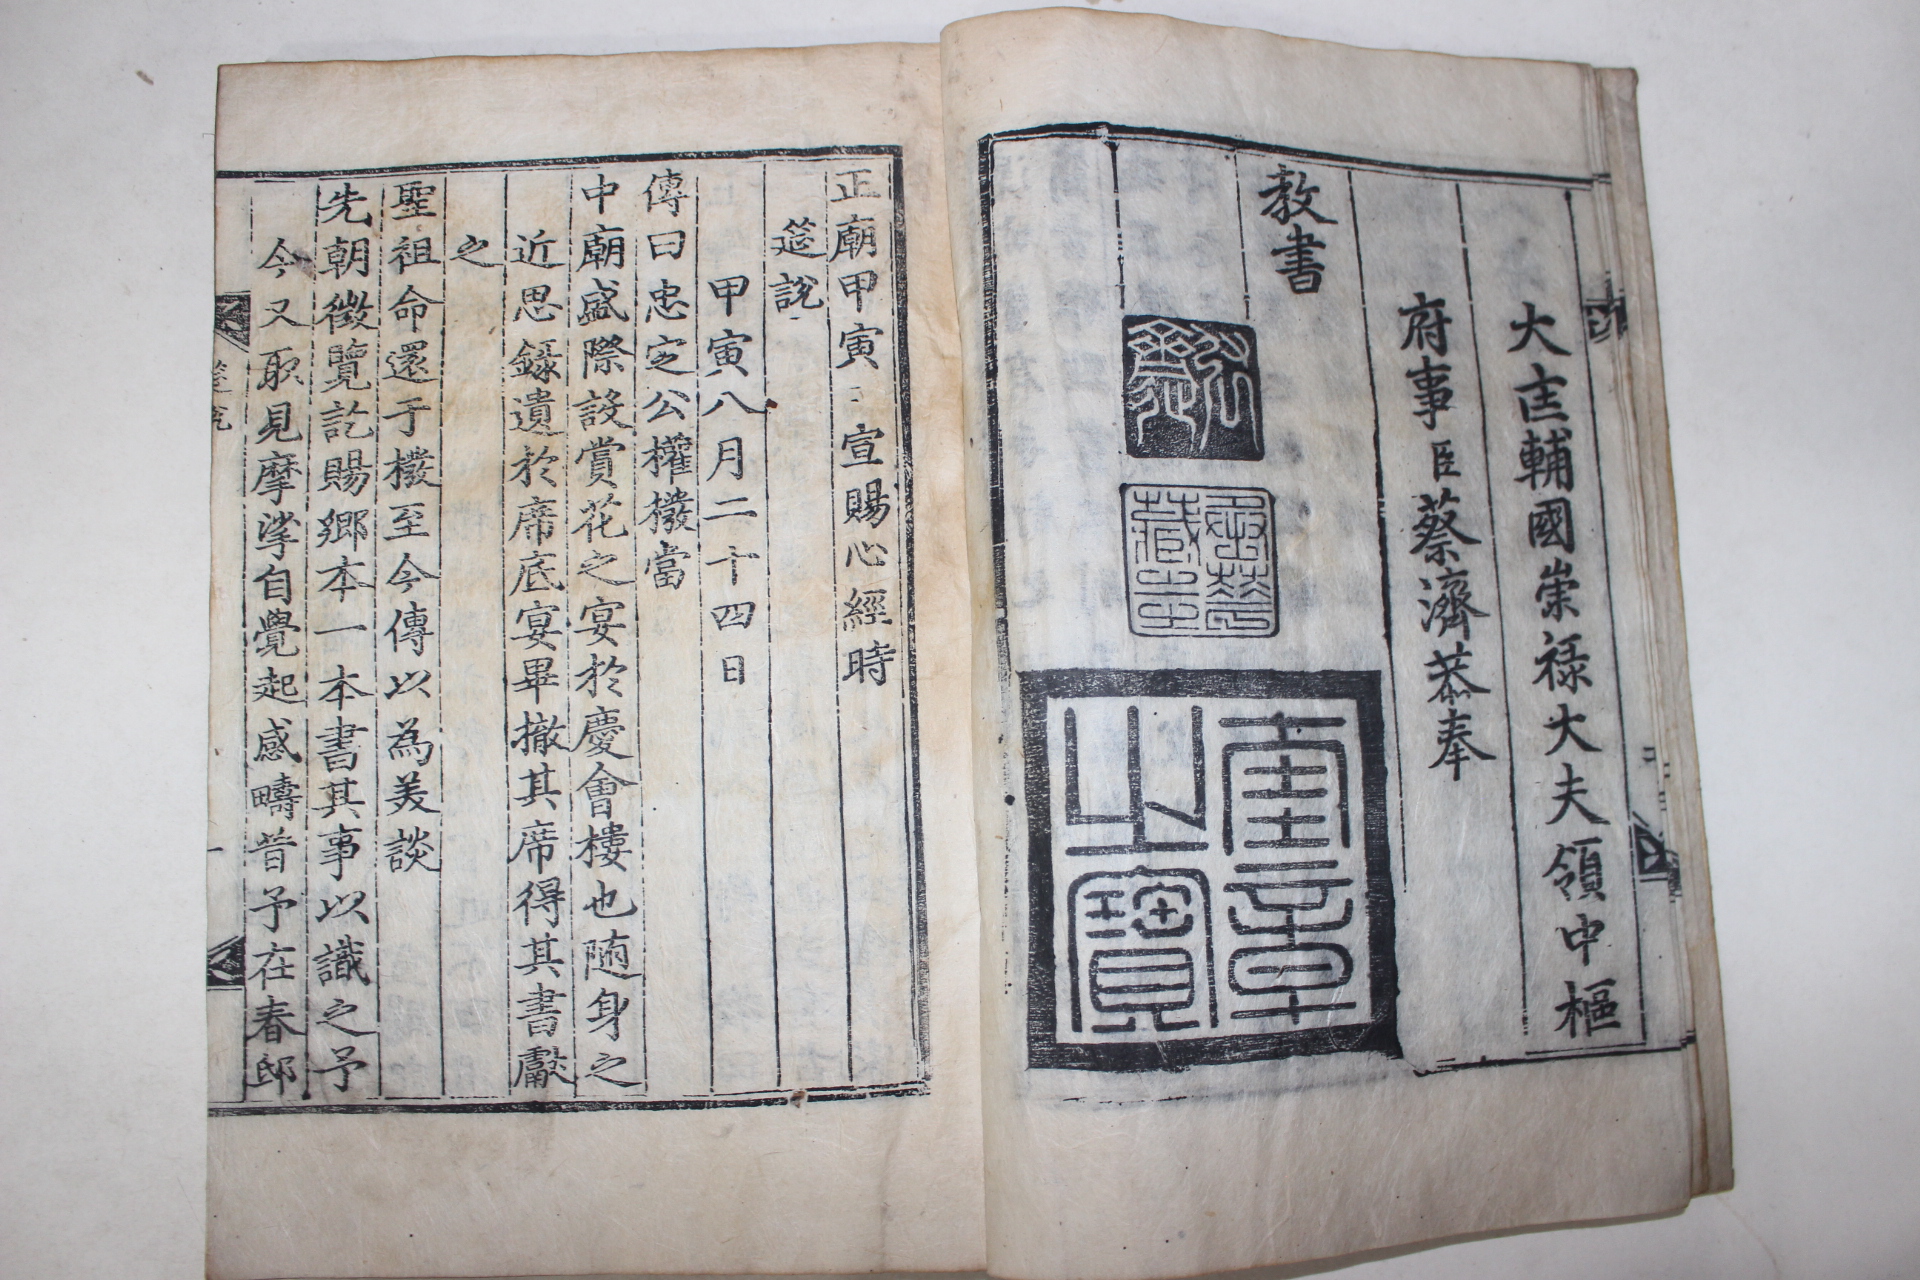 大匡輔國崇祿大夫領中樞
府事臣蔡濟恭奉
教書
弘齋
奎章
之寶
正廟甲寅 宣賜心經時
筵說
甲寅八月二十四日
傳曰忠定公權撥當
中廟盛際設賞花之宴於慶會樓也随身之
近思錄遺於席底宴畢撤其席得其書獻
之
聖祖命還于撥至今傳以為美談
先朝徵覽訖賜鄉本一本書其事以識之予
今又取見摩挲自覺起感疇昔予在春邸
筵說
一